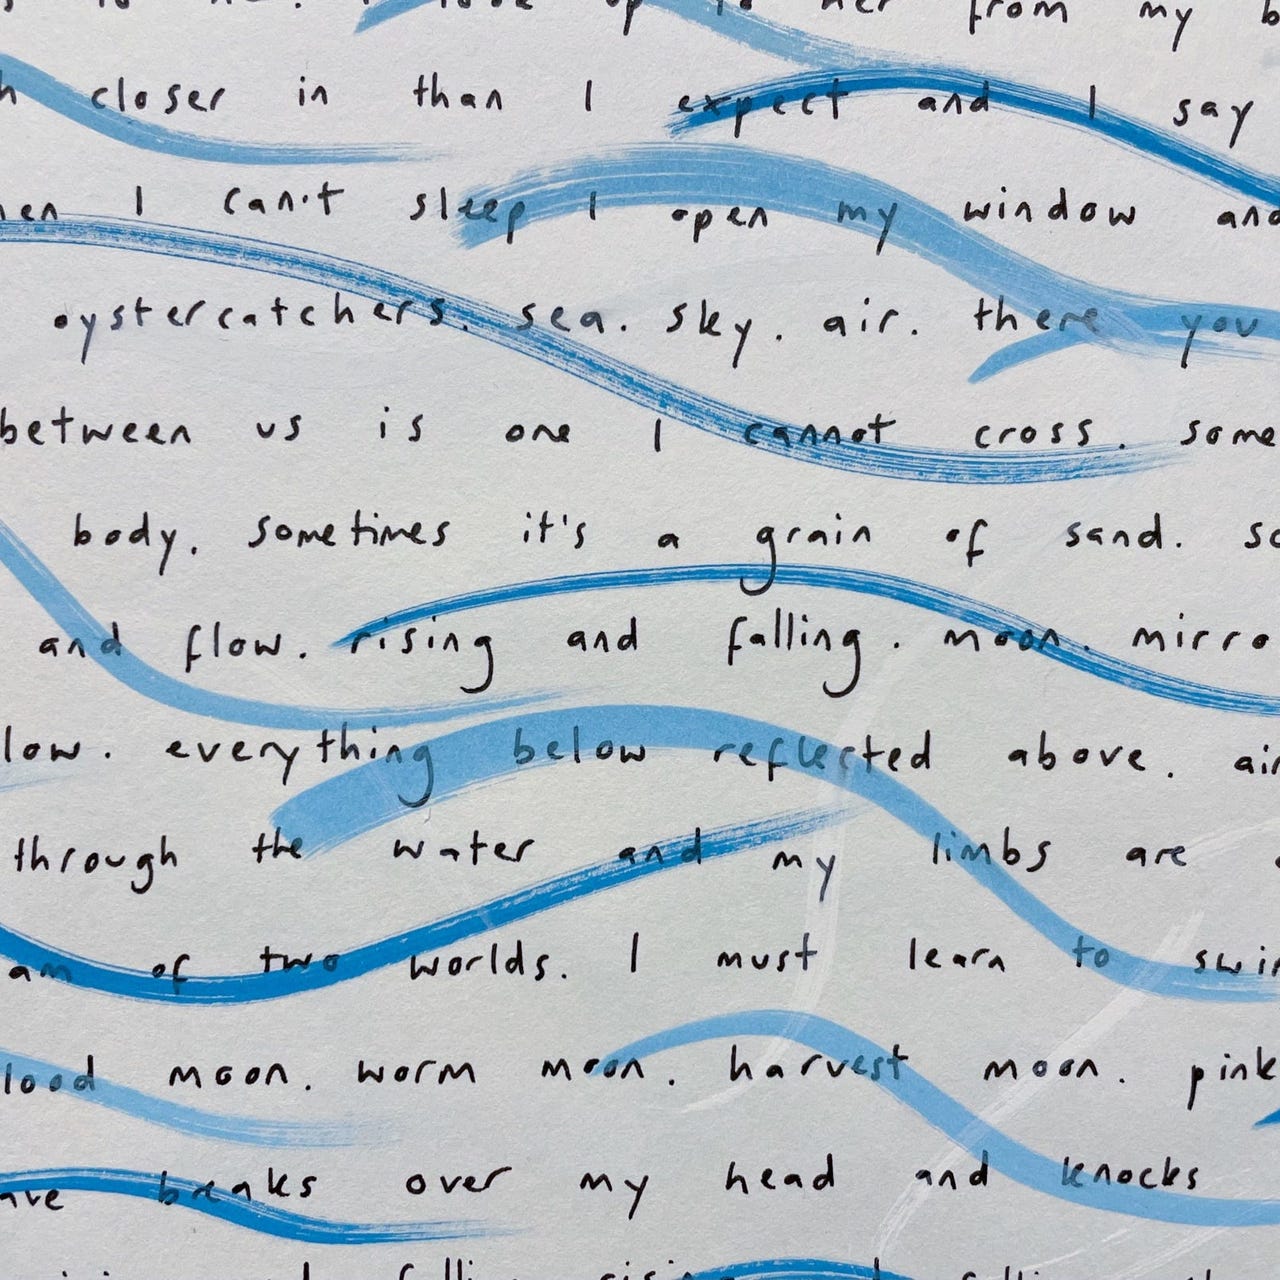 to her from my
closer in than I expect and I say
I can't sleep I open my window and
oystercatchers. sea. sky. air. there you
between us is one I cannot cross. some
body. sometimes it's a grain of sand. so
and flow. rising and falling. moon. mirro
low. everything below reflected above. air
through the water and my limbs are
am of two worlds. I must learn to swim
lood moon. worm moon. harvest moon. pink
ave breaks over my head and knocks